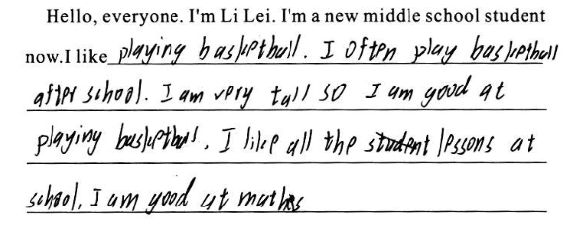 Hello, everyone. I'm Li Lei. I'm a new middle school student
now.I like playing basketball. I often play basketball
after school. I am very tall so I am good at
playing basketball. I like all the student lessons at
school. I am good at maths